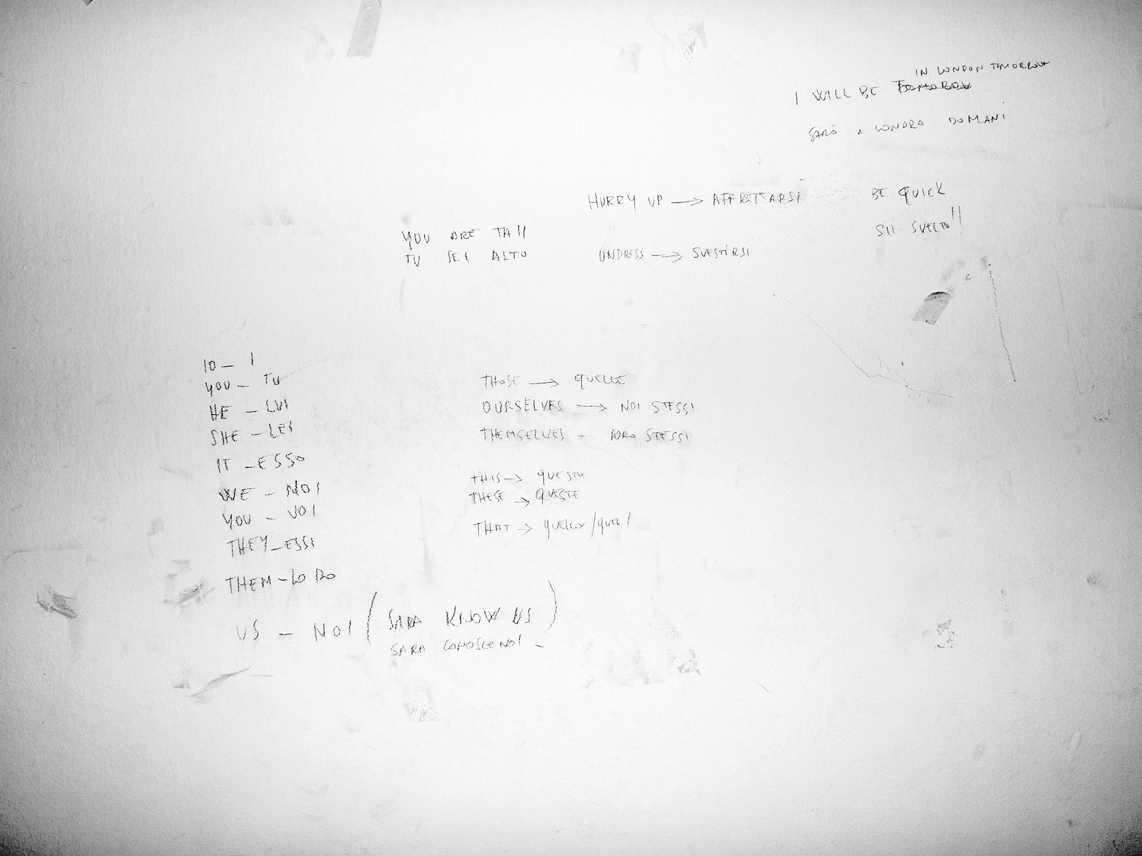 IN LONDON TOMORROW
I WILL BE TOMOROW
SARÒ A LONDRA DOMANI
HURRY UP → AFFRETTARSI
BE QUICK
SII SVELTO!!
YOU ARE TAll
TU SEI ALTO
UNDRESS → SVESTIRSI
IO – I
YOU – TU
HE – LUI
SHE – LEI
IT – ESSO
WE – NOI
YOU – VOI
THEY – ESSI
THEM – LORO
US – NOI (SARA KNOW US)
SARA CONOSCE NOI –
THOSE → QUELLE
OURSELVES → NOI STESSI
THEMSELVES – LORO STESSI
THIS → QUESTO
THESE → QUESTE
THAT → QUELLO/QUEL